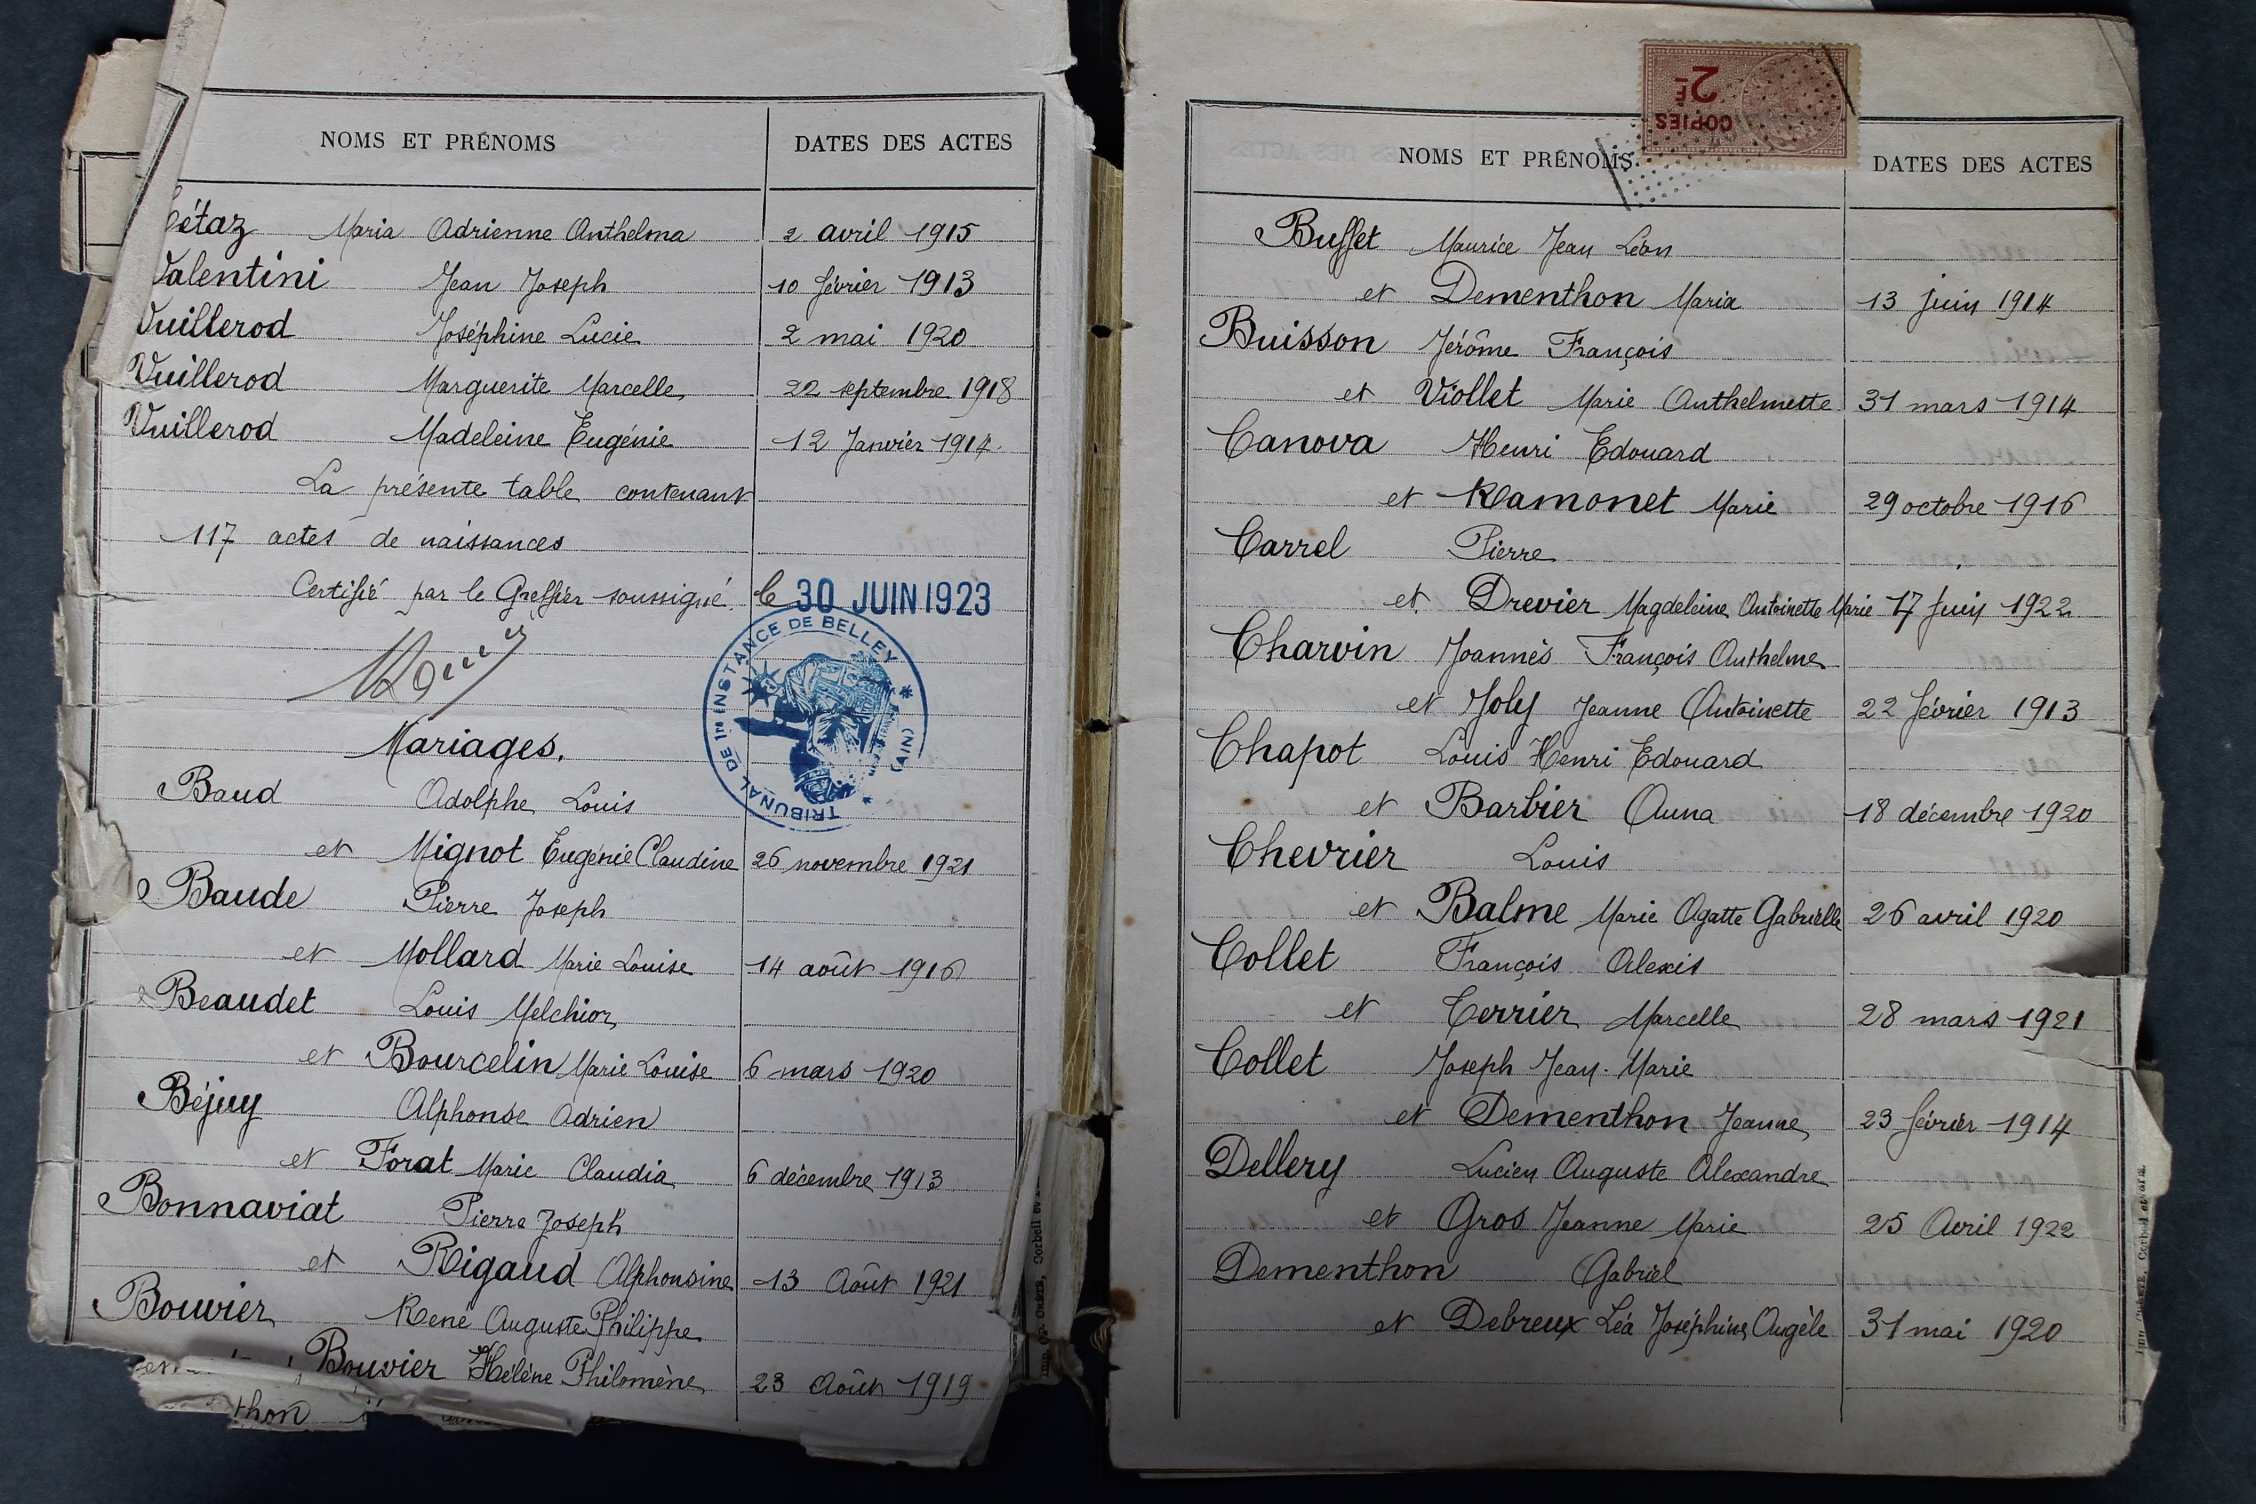 NOMS ET PRÉNOMS DATES DES ACTES
étaz Maria Adrienne Anthelma 2 avril 1915
Valentini Jean Joseph 10 février 1913
Vuillerod Joséphine Lucie 2 mai 1920
Vuillerod Marguerite Marcelle 22 septembre 1918
Vuillerod Madeleine Eugénie 12 Janvier 1914
La présente table contenant
117 actes de naissances
Certifié par le Greffier soussigné le 30 JUIN 1923
TRIBUNAL DE 1re INSTANCE DE BELLEY * (AIN) *
Mariages.
Baud Adolphe Louis
et Mignot Eugénie Claudine 26 novembre 1921
Baude Pierre Joseph
et Mollard Marie Louise 14 août 1916
Beaudet Louis Melchior
et Bourcelin Marie Louise 6 mars 1920
Béjuy Alphonse Adrien
et Forat Marie Claudia 6 décembre 1913
Bonnaviat Pierre Joseph
et Rigaud Alphonsine 13 Août 1921
Bouvier René Auguste Philippe
Bouvier Hélène Philomène 23 Août 1919
thon
COPIES 2F
NOMS ET PRÉNOMS DATES DES ACTES
Buffet Maurice Jean Léon
et Dementhon Maria 13 juin 1914
Buisson Jérôme François
et Viollet Marie Anthelmette 31 mars 1914
Canova Henri Edouard
et Ramonet Marie 29 octobre 1916
Carrel Pierre
et Drevier Magdeleine Antoinette Marie 17 juin 1922
Charvin Joannès François Anthelme
et Joly Jeanne Antoinette 22 février 1913
Chapot Louis Henri Edouard
et Barbier Anna 18 décembre 1920
Chevrier Louis
et Balme Marie Agatte Gabrielle 26 avril 1920
Collet François Alexis
et Cerrier Marcelle 28 mars 1921
Collet Joseph Jean-Marie
et Dementhon Jeanne 23 février 1914
Dellery Lucien Auguste Alexandre
et Gros Jeanne Marie 25 Avril 1922
Dementhon Gabriel
et Debreux Léa Joséphine Angèle 31 mai 1920